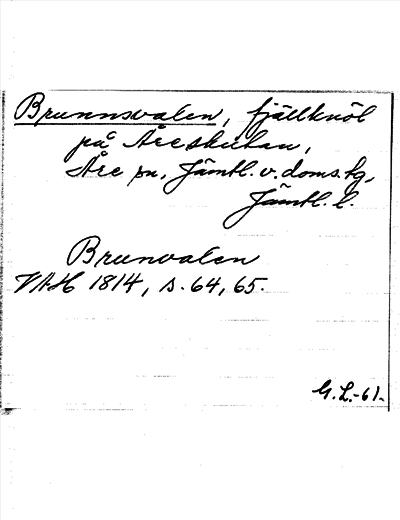 Brunnsvalen, fjällknöl
på Åreskutan,
Åre sn, Jämtl. v. doms.tg,
Jämtl. l.
Brunvalen
VAH 1814, s. 64, 65.
G.L.-61.